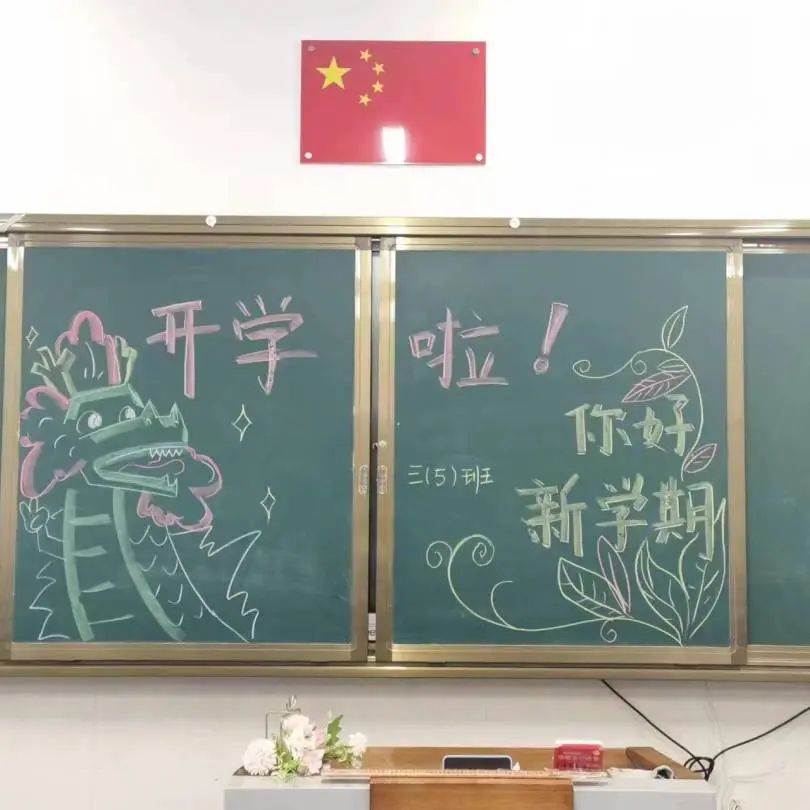 开学啦！
你好
三(5)班
新学期